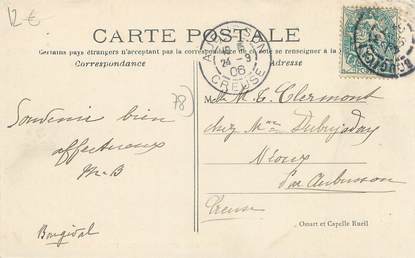 12€
CARTE POSTALE
Certains pays étrangers n'acceptant pas la correspondance de ce côté se renseigner à la
Correspondance
Adresse
AUBUSSON
24 - 9
06
CREUSE
BOUGIVAL
78)
Souvenir bien
affectueux
M-B
Bougival
M. L. Clermont
chez Mme
Néoux
Par Aubusson
Creuse
Omart et Capelle Rueil